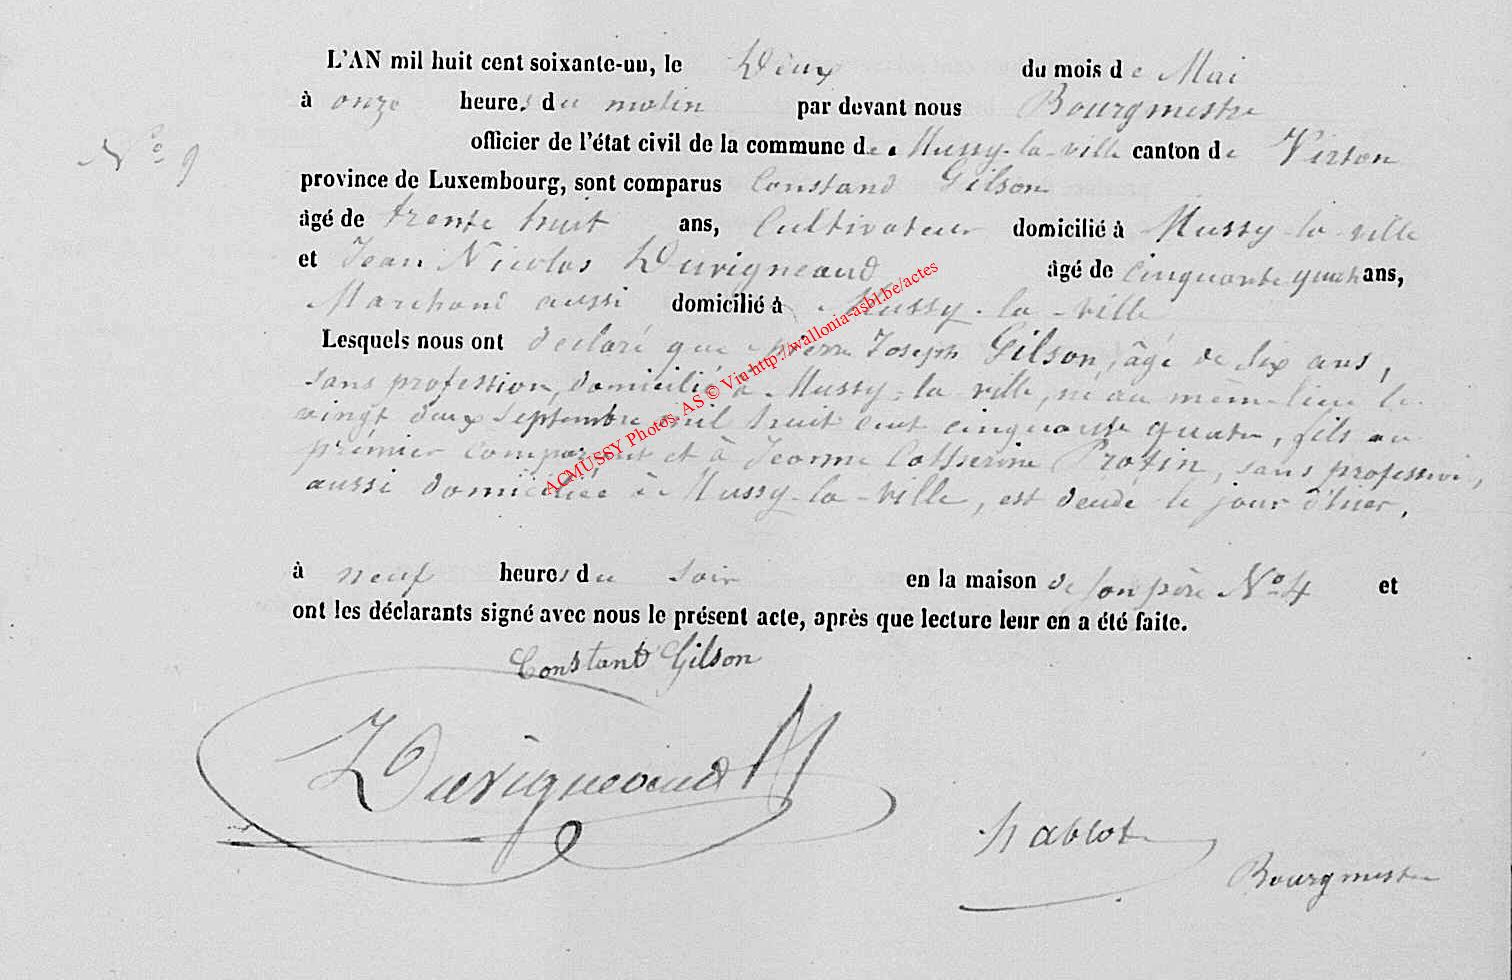 L'AN mil huit cent soixante-un, le Deux du mois de Mai
à onze heures du matin par devant nous Bourgmestre
officier de l'état civil de la commune de Mussy-la-ville canton de Virton
N° 9
province de Luxembourg, sont comparus Constand Gilson
âgé de trente huit ans, Cultivateur domicilié à Mussy-la-ville
et Jean Nicolas Duvigneaud âgé de cinquante quatre ans,
Marchand aussi domicilié à Mussy-la-ville
Lesquels nous ont déclaré que pierre Joseph Gilson, âgé de six ans,
sans profession, domicilié à Mussy-la ville, né au même lieu le
vingt deux septembre mil huit cent cinquante quatre, fils au
prémier comparant et à Jeanne Catherine Protin, sans profession,
aussi domiciliée à Mussy-la-ville, est decédé le jour d'hier,
à neuf heures du soir en la maison de son père N° 4 et
ont les déclarants signé avec nous le présent acte, après que lecture leur en a été faite.
Constant Gilson
Duvigneaud
Bourgmestre
ACMUSSY Photos. AS © Via http://wallonia-asbl.be/actes